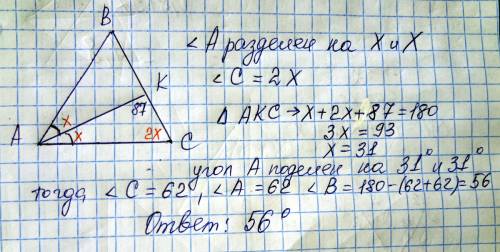 B
∠A разделен на X и X
∠C = 2X
K
87
Δ AKC → X+2X+87=180
x
A
x
2x
C
3X = 93
X = 31
угол A поделен на 31° и 31°
тогда ∠C = 62, ∠A = 62 ∠B = 180-(62+62)=56
Ответ: 56°